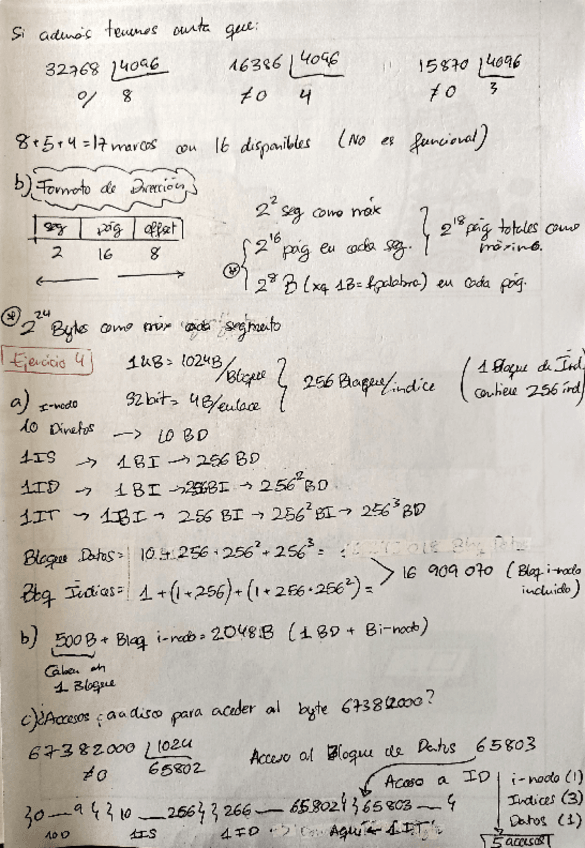 Si además tenemos cuenta que:
32768 | 4096    16386 | 4096    15870 | 4096
0/ 8    ≠0 4    ≠0 3
8+5+4=17 marcos con 16 disponibles (No es funcional)
b) Formato de Dirección
seg | pág | offset
2 16 8
2² seg como máx
2¹⁶ pág en cada seg. } 2¹⁸ pág totales como máximo.
⊛ 2⁸ B (xq 1B=1palabra) en cada pág.
⊛ 2²⁴ Bytes como máx cada segmento
Ejercicio 4
1kB = 1024B/Bloque
32bit = 4B/enlace } 256 Bloque/indice (1 Bloque de Índ contiene 256 índ)
a) I-nodo
10 Directos → 10 BD
1IS → 1BI → 256 BD
1ID → 1BI → 256BI → 256² BD
1IT → 1BI → 256 BI → 256² BI → 256³ BD
Bloque Datos = 10 + 256 + 256² + 256³ =
Blq Índices = 1 + (1+256) + (1+256+256²) = > 16 909 070 (Bloq i-nodo incluido)
b) 500B + Bloq i-nodo = 2048B (1BD + Bi-nodo)
Caben en
1 Bloque
c) ¿Accesos a disco para aceder al byte 67382000?
67382000 | 1024
≠0 65802
Acceso al Bloque de Datos 65803
Acceso a ID
i-nodo (1)
Indices (3)
Datos (1)
5 accesos
}0 — 9{ }10 — 256{ }266 — 65802{ }65803 — {
10D 1IS 1ID Aquí ← 1IT